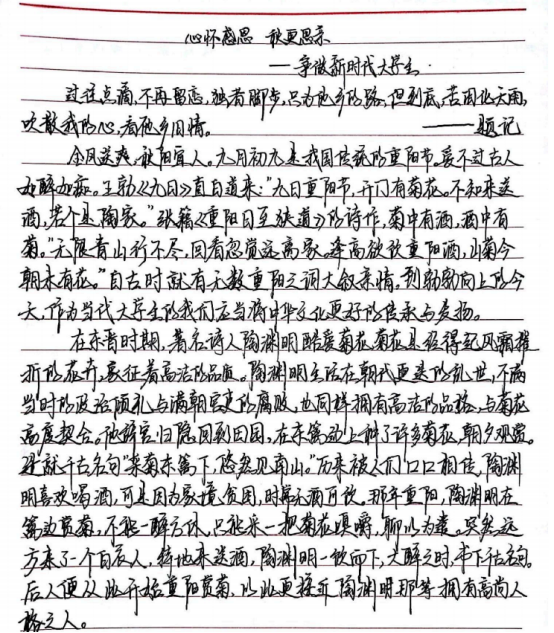 心怀感恩 秋更思亲
——争做新时代大学生.
过往点滴,不再留恋,独有脚步,只为他乡的路,但到底,苦困化天雨,
吹散我的心,看他乡旧情。 ——题记
金风送爽,秋阳宜人。九月初九是我国传统的重阳节。爱不过古人
如醉如痴。王勃《九日》直白道来:"九日重阳节,开门有菊花。不知来送
酒,若个是陶家。"张籍《重阳日至峡道》的诗作,菊中有酒,酒中有
菊。"无限青山行不尽,回看忽觉远离家。逢高欲饮重阳酒,山菊今
朝未有花。"自古时就有无数重阳之词大叙亲情。到勃勃向上的今
天,作为当代大学生的我们应当将中华文化更好的传承与发扬。
在东晋时期,著名诗人陶渊明酷爱菊花,菊花是经得起风霜摧
折的花卉,象征着高洁的品质。陶渊明生活在朝代更迭的乱世,不满
当时的政治颠乱与满朝官吏的腐败,也同样拥有高洁的品格,与菊花
高度契合。他辞官归隐回到田园,在东篱边上种了许多菊花,朝夕观赏。
造就千古名句"采菊东篱下,悠然见南山。"历来被人们口口相传,陶渊
明喜欢喝酒,可是因为家境贫困,时常无酒可饮。那年重阳,陶渊明在
篱边赏菊,不能一醉方休,只能采一把菊花嚼嚼,聊以为意。突然远
方来了一个白衣人,特地来送酒,陶渊明一饮而下,大醉之时,书下千古名句。
后人便从此开始重阳赏菊,以此更接近陶渊明那等拥有高尚人
格之人。